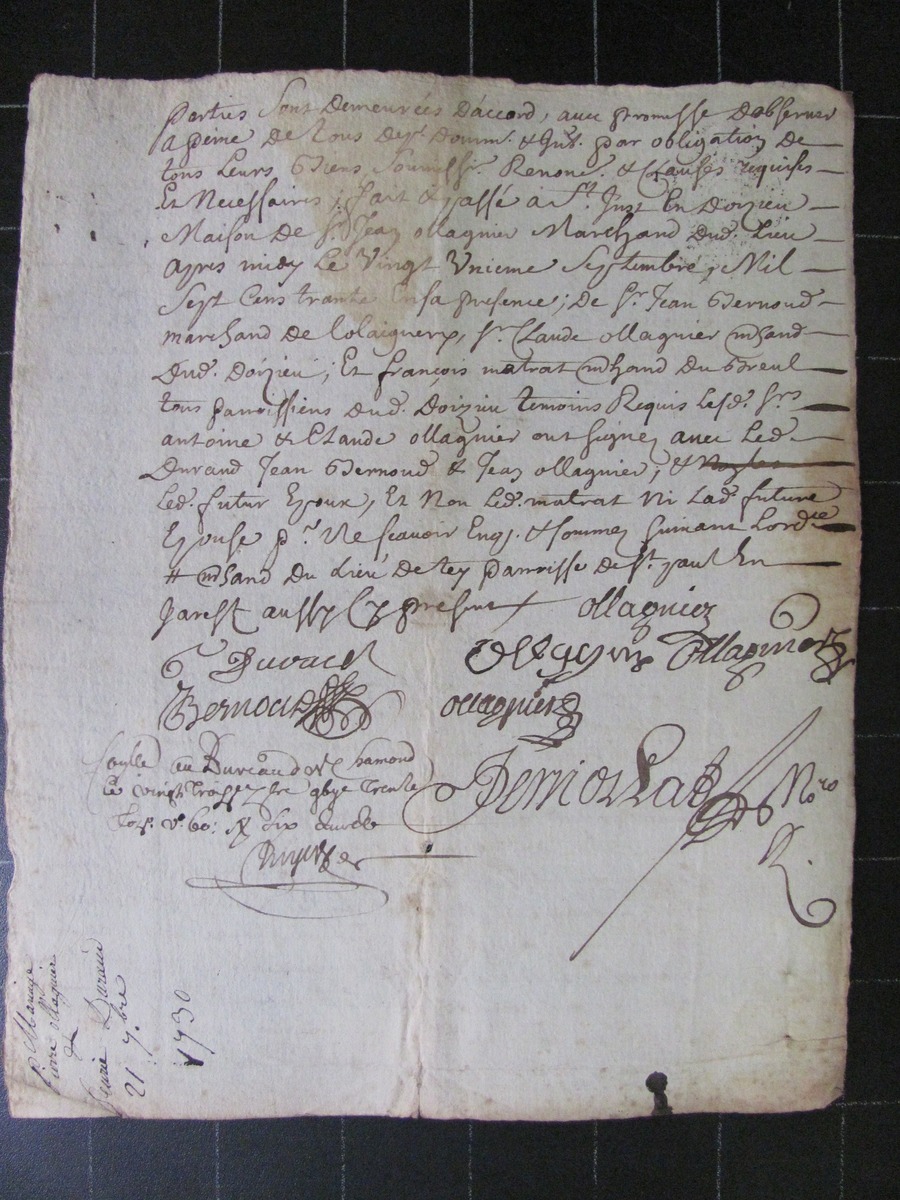 parties sont demeurées daccord, avec promesse dobserver
a peine de tous dep.s domm. & Int. par obligation de
tous Leurs Biens soumiss. Renonc. & Clauses requises
Et Necessaires; fait & passé à St. Just En doizieu
Maison de Sr. Jean ollagnier Marchand dud. Lieu
apres midy Le vingt Unieme septembre, Mil
sept Cens trante En sa presence; de Sr. Jean Bernoud
marchand de sr. Claude ollagnier mhand
dud. doizieu; Et françois matrat mhand du Breul
tous parroissiens dud. doizieu temoins Requis Lesd. Srs
antoine & Claude ollagnier ont signez avec Led.
durand Jean Bernoud & Jean ollagnier, &
Led. futur Epoux, Et Non Led. matrat Ni Lad. future
Epouse pr. Ne scavoir Enq. & sommez suivant Lordce
# mhand du Lieu de parroisse de St. paul En
Jarest aussy Cy present ollagnier
Durand ollagnier ollagnier
Bernoud ollagnier
au Bureau de St Chamond
Le vingt trois 7bre trente
six sous
Nro
R.
Mariage
pierre ollagnier
&
Durand
21 7.bre
1730